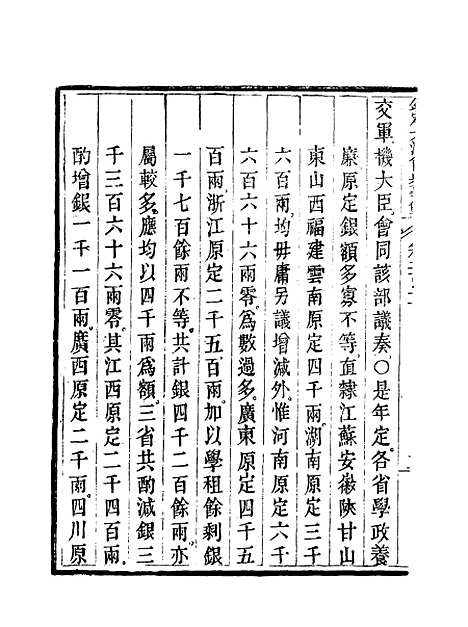 交軍機大臣會同該部議奏○是年定各省學政養
廉原定銀額多寡不等直隸江蘇安徽陝甘山
東山西福建雲南原定四千兩湖南原定三千
六百兩均毋庸另議增減外惟河南原定六千
六百六十六兩零爲數過多廣東原定四千五
百兩浙江原定二千五百兩加以學租餘剩銀
一千七百餘兩不等共計銀四千二百餘兩亦
屬較多應均以四千兩爲額三省共酌減銀三
千三百六十六兩零其江西原定二千四百兩
酌增銀一千一百兩廣西原定二千兩四川原